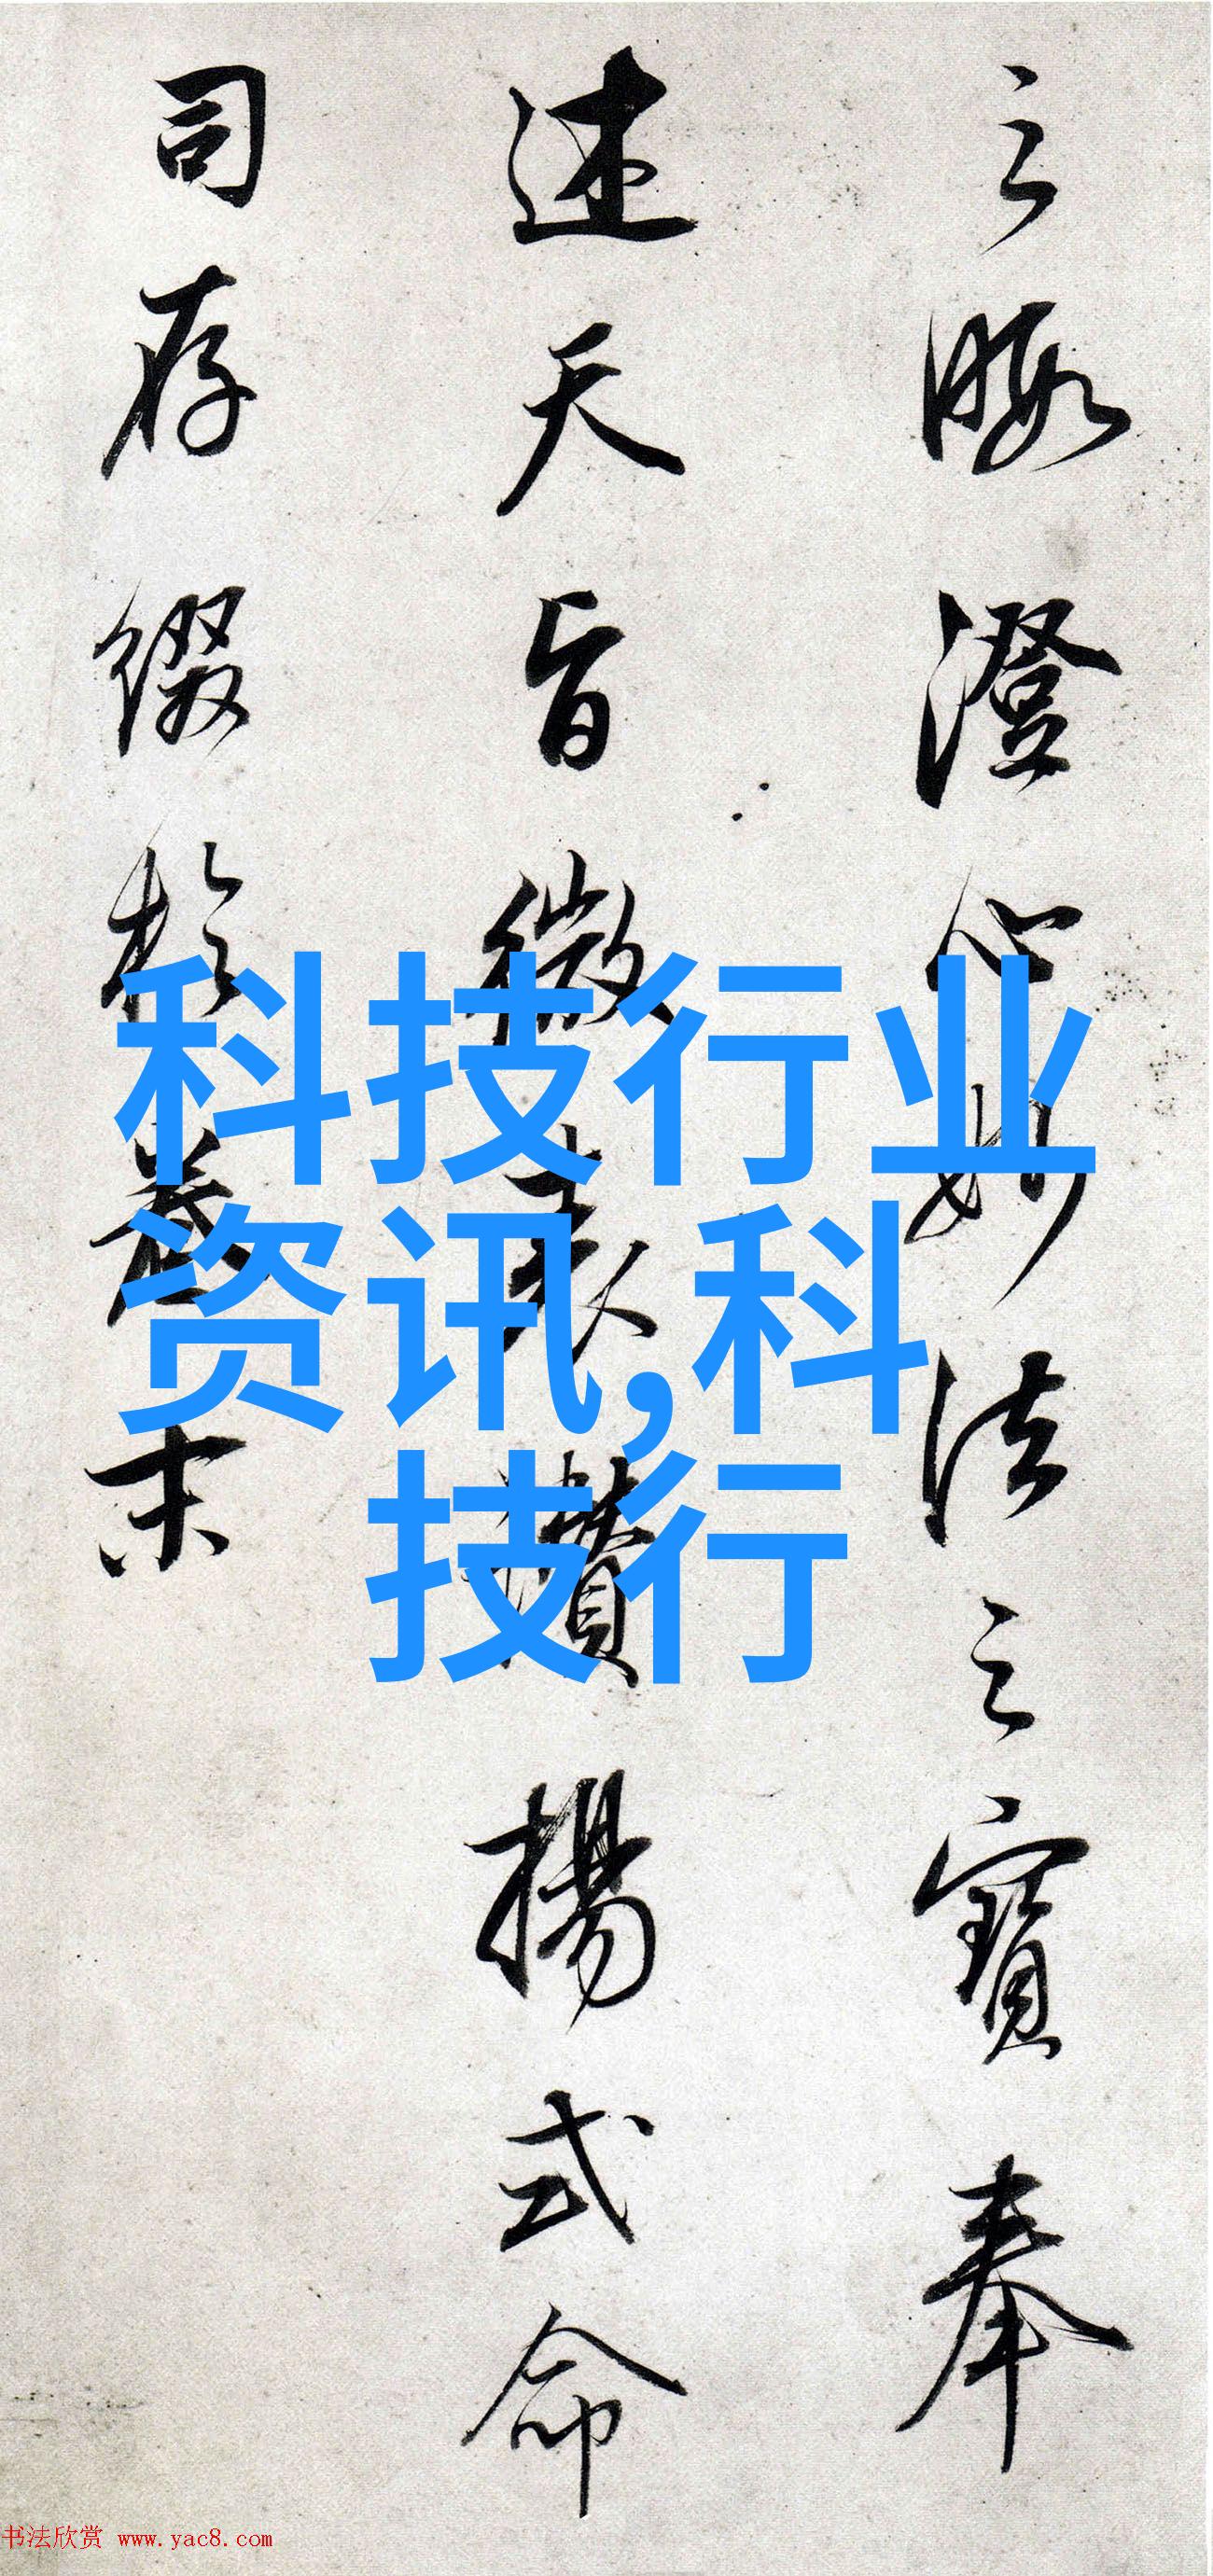 之暇澄心妙法之寶奉
述天旨微表讚揚式命
司存綴於卷末
科技行业
资讯,科
技行
书法欣赏 www.yac8.com